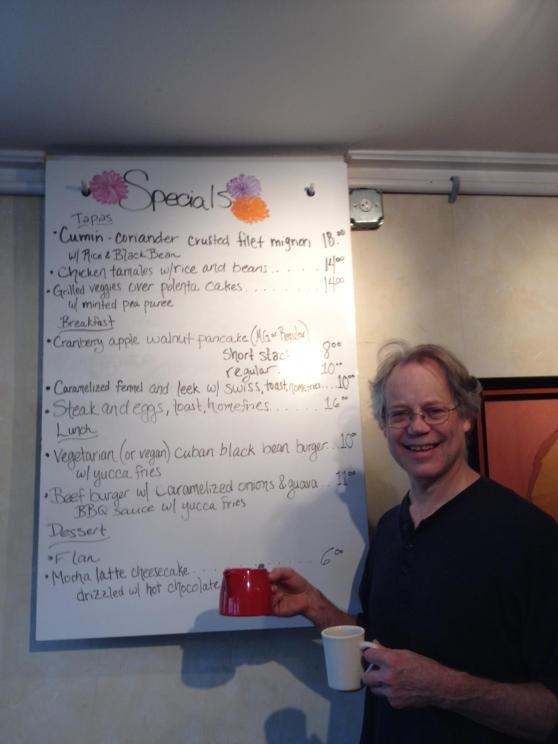 Specials
Tapas
• Cumin - coriander crusted filet mignon 18.00
w/ Rice & Black Bean
• Chicken tamales w/rice and beans..... 14.00
• Grilled veggies over polenta cakes........ 14.00
w/ minted pea puree
Breakfast
• Cranberry apple walnut pancake (MG or Render)
Short stac 8.00
regular. 10.00
• Caramelized fennel and leek w/ swiss, toast, homefries... 10.00
• Steak and eggs, toast, homefries........ 16.00
Lunch
• Vegetarian (or vegan) Cuban black bean burger.. 10.00
w/ yucca fries
• Beef burger w/ caramelized onions & guava.. 11.00
BBQ sauce w/ yucca fries
Dessert
• Flan
• Mocha latte cheesecake............ 6.00
drizzled w/ hot chocolate